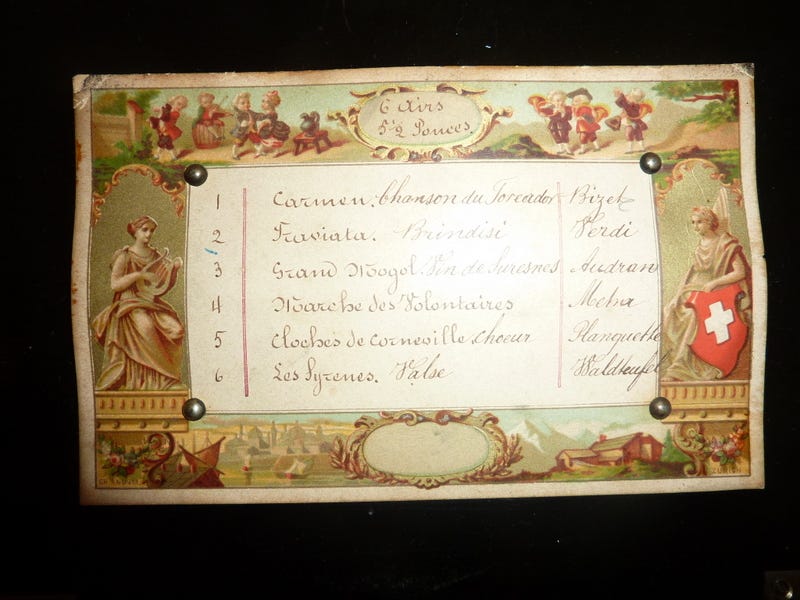 6 Airs
5½ Pouces
1 Carmen. Chanson du Toreador Bizet
2 Traviata. Brindisi Verdi
3 Grand Mogol Vin de Suresnes Audran
4 Marche des Volontaires Metra
5 Cloches de Corneville Choeur Planquette
6 Les Syrenes. Valse Waldteufel
ZURICH